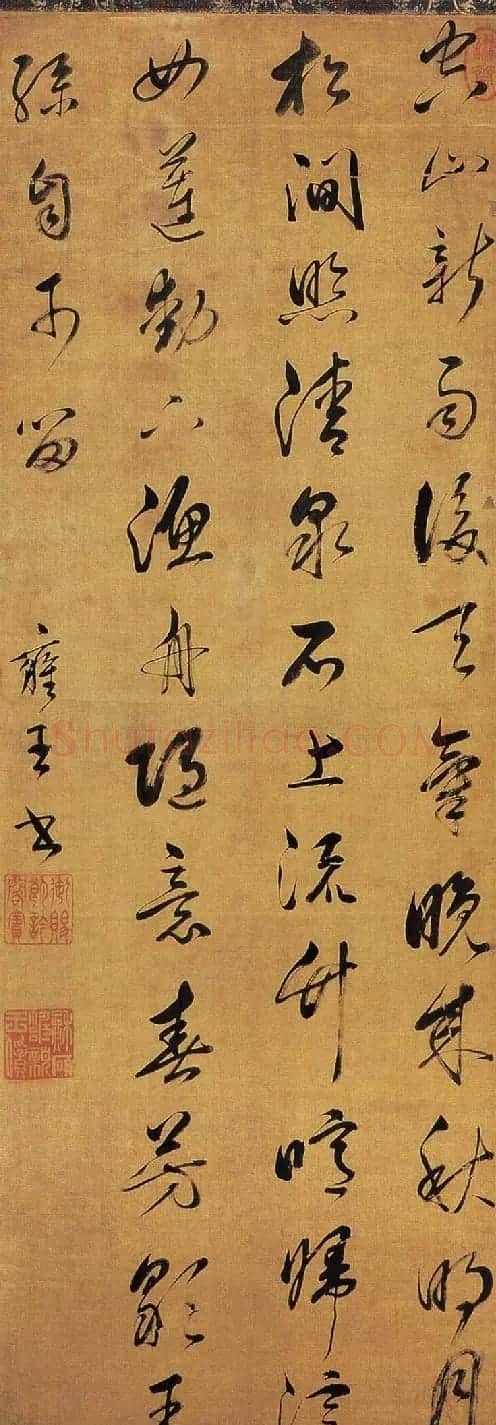 空山新雨後天氣晚來秋明月
松澗照清泉石上流竹喧歸浣
女蓮動下漁舟隨意春芳歇王
孫自可留
雍王書
Shufaziliao.COM